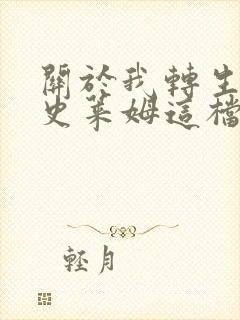 關於我轉生
史萊姆這檔
輕月